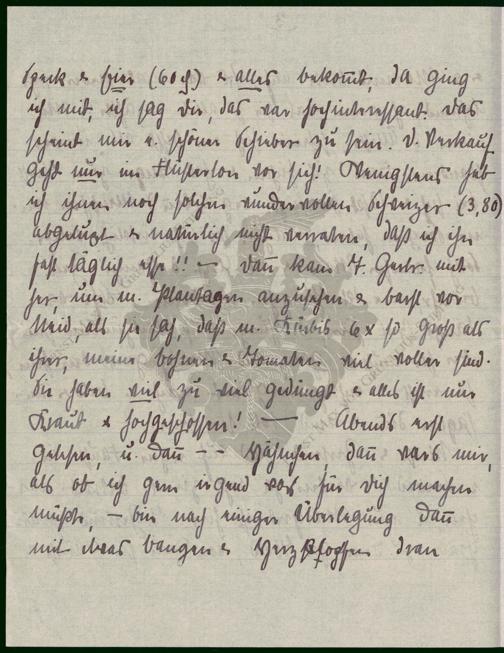 Speck & Eier (60 ₰) & alles bekom̄t, da ging
ich mit, ich sag Dir, das war hochinteressant. Das
scheint mir e. schöner Schieber zu sein. D. Verkauf
geht nur im Flüsterton vor sich! Wenigstens hab
ich ihnen noch solchen wundervollen Schweizer (3,80)
abgelupst & natürlich nicht verraten, daß ich ihn
fast täglich esse!! — Dan̄ kam F. mit
her, um m. Plantagen anzusehen & barst vor
Neid, als sie sah, daß m. Kürbis 6 x so groß als
ihrer, meine Bohnen & Tomaten viel voller sind.
Sie haben viel zu viel gedüngt & alles ist nur
Kraut & hochgeschossen! — Abends erst
gelesen, u. dan̄ -- dan̄ wars mir,
als ob ich gern irgend was für Dich machen
müßte, — bin nach einiger Überlegung dan̄
mit etwas bangen & Herzklopfen dran